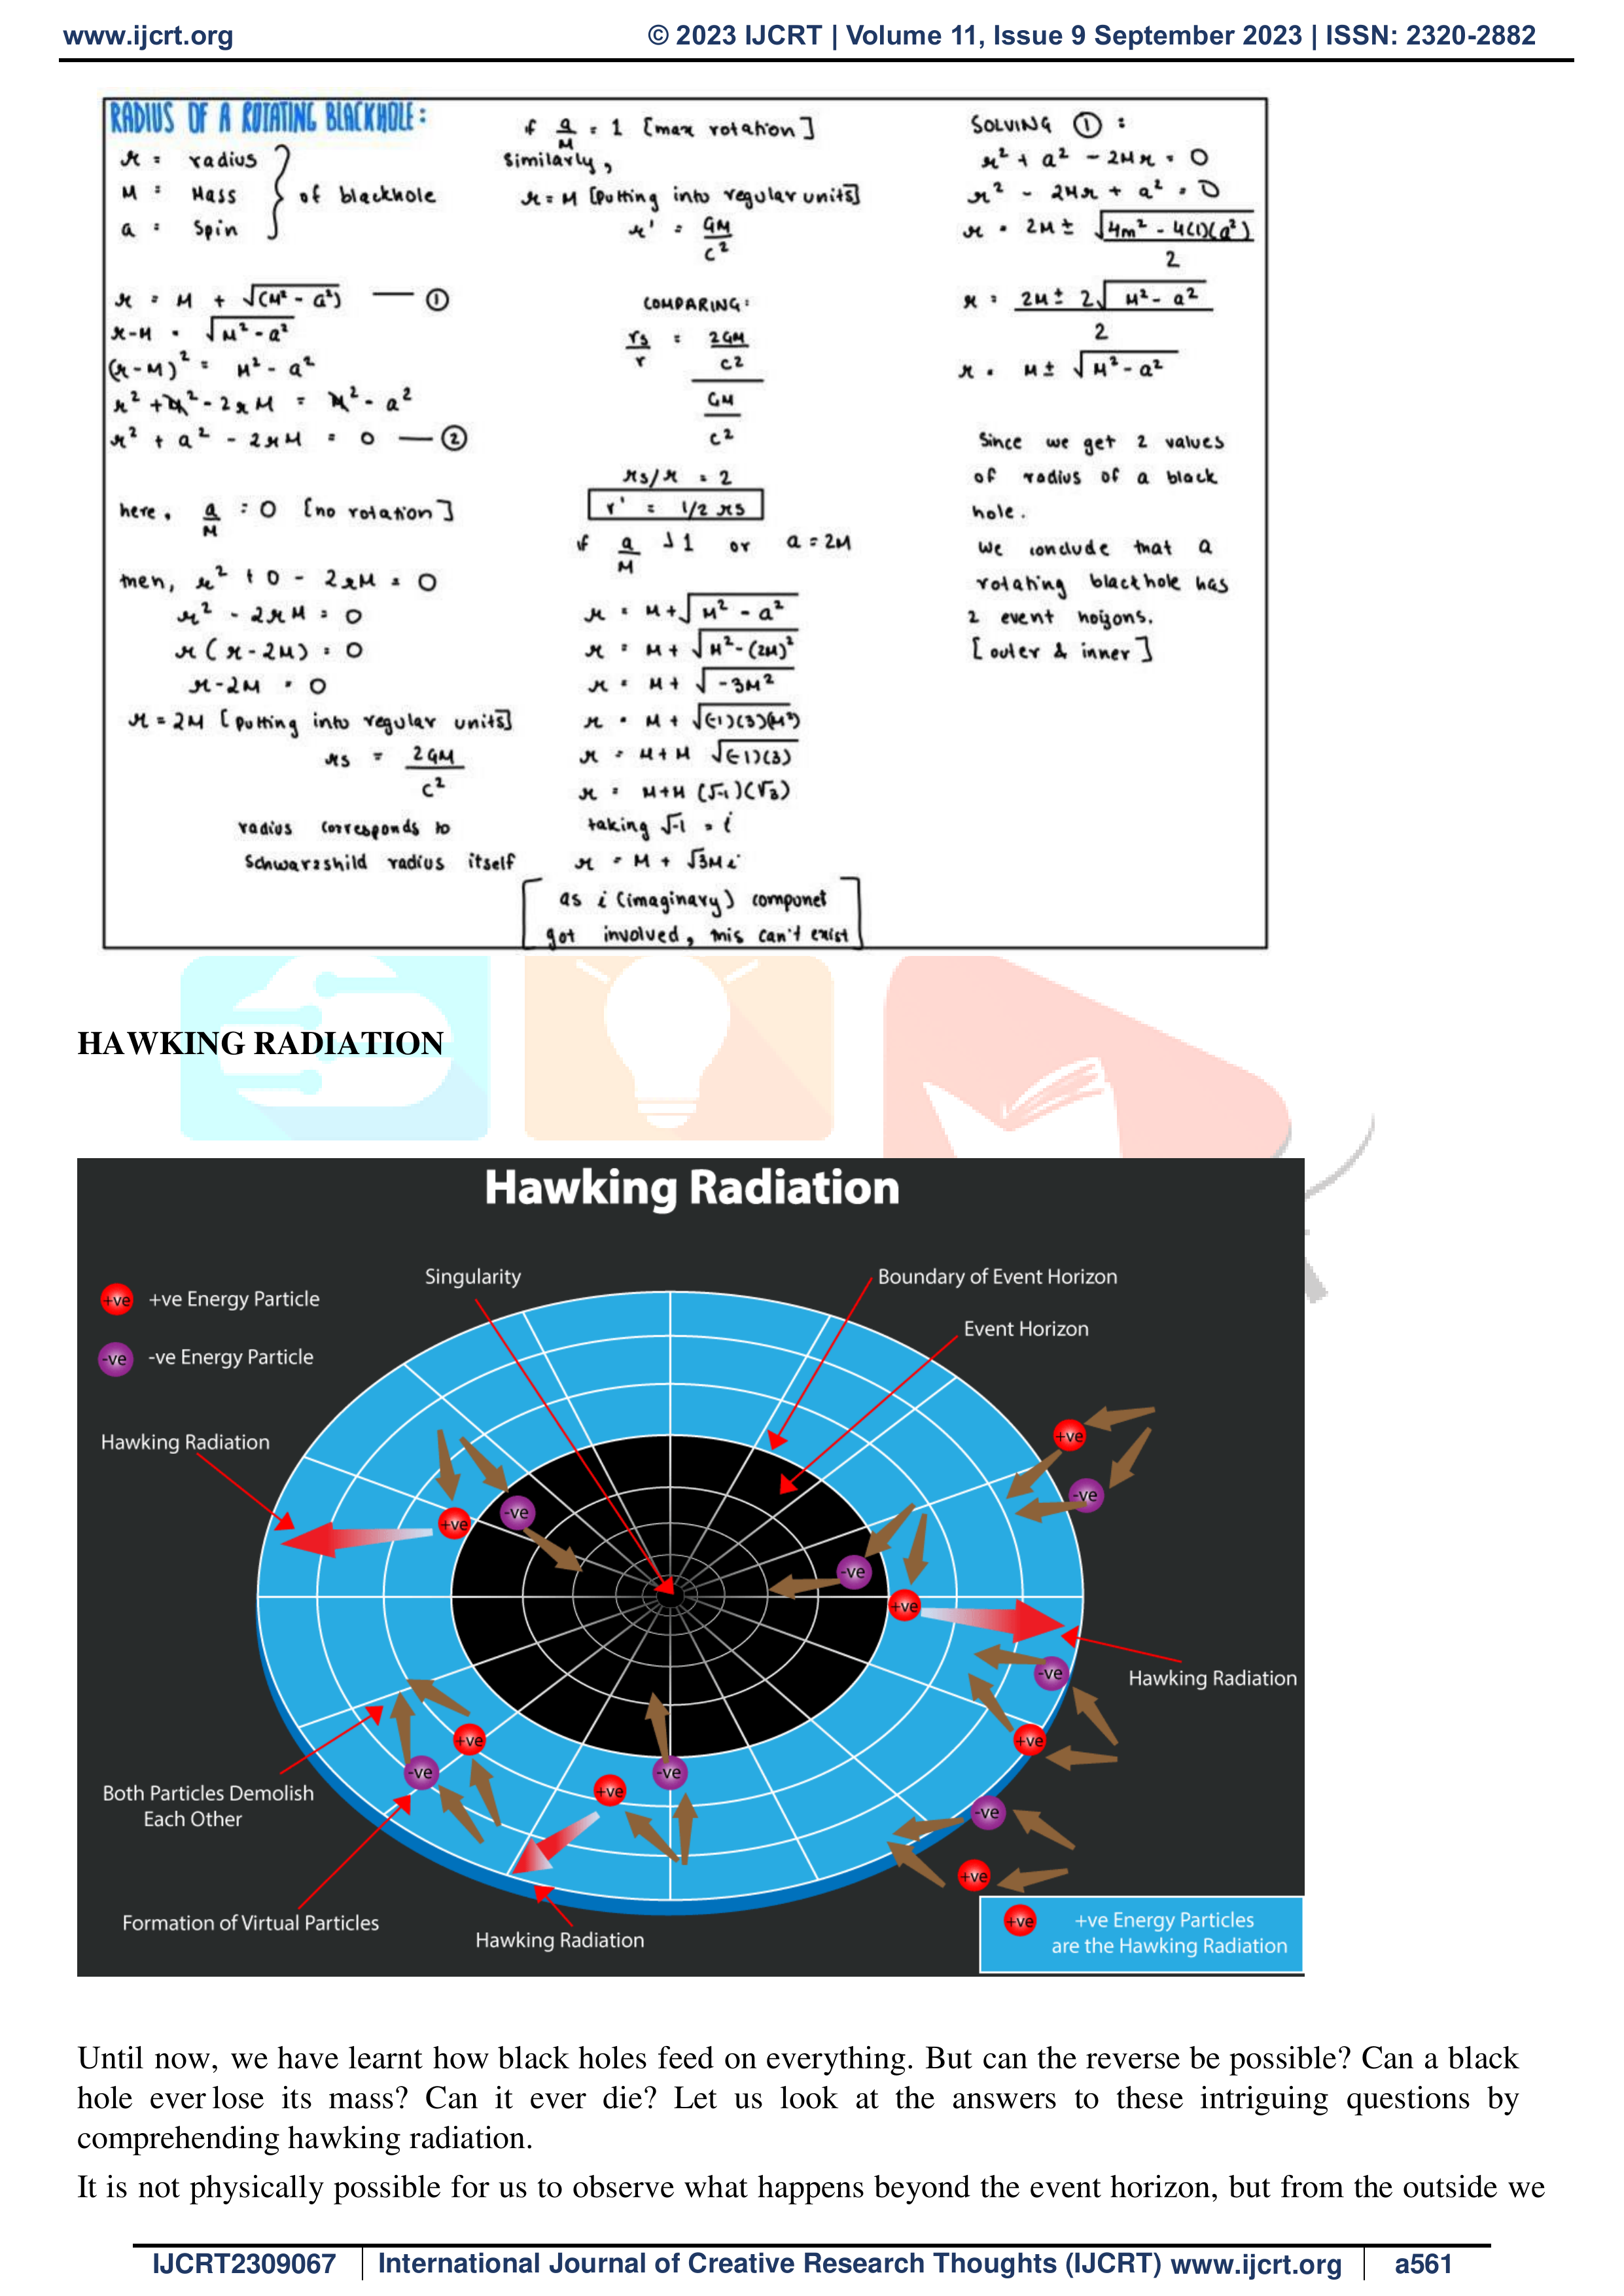 www.ijcrt.org © 2023 IJCRT | Volume 11, Issue 9 September 2023 | ISSN: 2320-2882
RADIUS OF A ROTATING BLACKHOLE:
r = radius
M = Mass
a = Spin
of blackhole
r = M + √(M² - a²) — ①
r-M = √M² - a²
(r-M)² = M² - a²
r² + M² - 2rM = M² - a²
r² + a² - 2rM = 0 — ②
here, a/M = 0 [no rotation]
then, r² + 0 - 2rM = 0
r² - 2rM = 0
r(r-2M) = 0
r-2M = 0
r = 2M [putting into regular units]
rs = 2GM/c²
radius corresponds to
Schwarzshild radius itself
if a/M = 1 [max rotation]
Similarly,
r = M [Putting into regular units]
r' = GM/c²
COMPARING:
rs/r = 2GM/c² / GM/c²
rs/r = 2
r' = 1/2 rs
if a/M ↓ 1 or a = 2M
r = M + √M² - a²
r = M + √M² - (2M)²
r = M + √-3M²
r = M + √(-1)(3)(M²)
r = M + M √(-1)(3)
r = M+M (√-1)(√3)
taking √-1 = i
r = M + √3Mi
as i (imaginary) componet
got involved, this can't exist
SOLVING ① :
r² + a² - 2Mr = 0
r² - 2Mr + a² = 0
r = 2M ± √4m² - 4(1)(a²) / 2
r = 2M ± 2√M² - a² / 2
r = M ± √M² - a²
Since we get 2 values
of radius of a black
hole.
We conclude that a
rotating blackhole has
2 event horizons.
[outer & inner]
HAWKING RADIATION
Hawking Radiation
Singularity
Boundary of Event Horizon
Event Horizon
+ve +ve Energy Particle
-ve -ve Energy Particle
Hawking Radiation
+ve
-ve
+ve
-ve
-ve
+ve
-ve
Hawking Radiation
+ve
+ve
-ve
+ve
-ve
Both Particles Demolish
Each Other
-ve
+ve
Formation of Virtual Particles
Hawking Radiation
+ve +ve Energy Particles
are the Hawking Radiation
Until now, we have learnt how black holes feed on everything. But can the reverse be possible? Can a black
hole ever lose its mass? Can it ever die? Let us look at the answers to these intriguing questions by
comprehending hawking radiation.
It is not physically possible for us to observe what happens beyond the event horizon, but from the outside we
IJCRT2309067 International Journal of Creative Research Thoughts (IJCRT) www.ijcrt.org a561